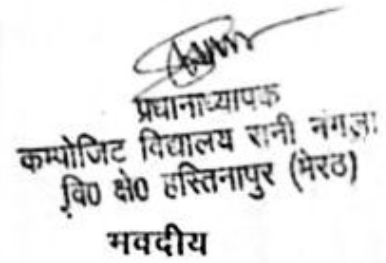 प्रधानाध्यापक
कम्पोजिट विद्यालय रानी नंगला
वि0 क्षे0 हस्तिनापुर (मेरठ)
भवदीय